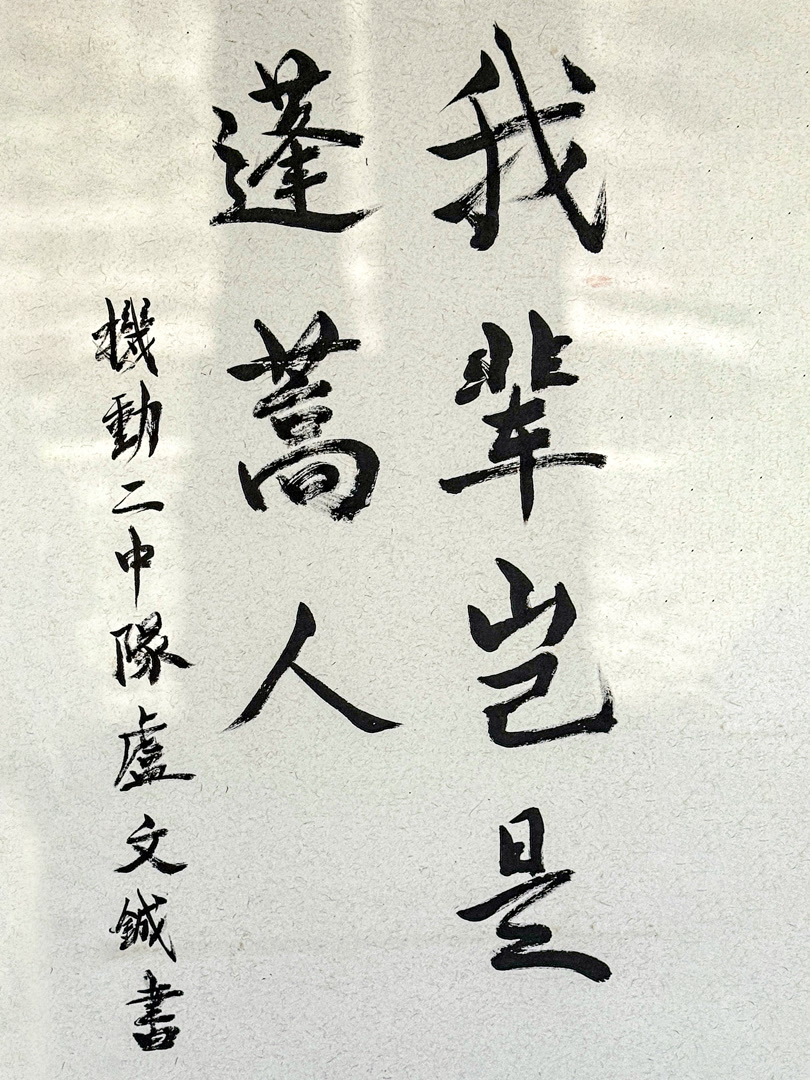 我辈岂是
蓬蒿人
機動二中隊盧文鋮書